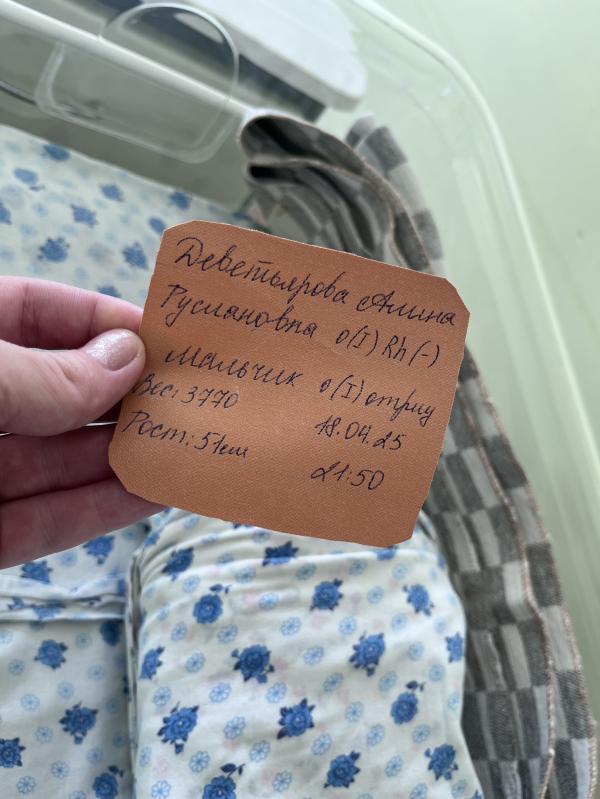 Деветьярова Амина
Руслановна 0(I) Rh(-)
Мальчик 0(I) отриц
Вес: 3770 18.04.25
Рост: 51см 21:50